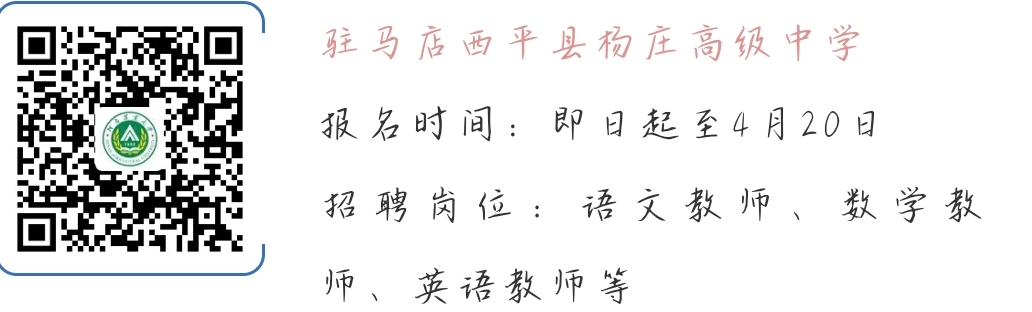 驻马店西平县杨庄高级中学
报名时间：即日起至4月20日
招聘岗位：语文教师、数学教
师、英语教师等